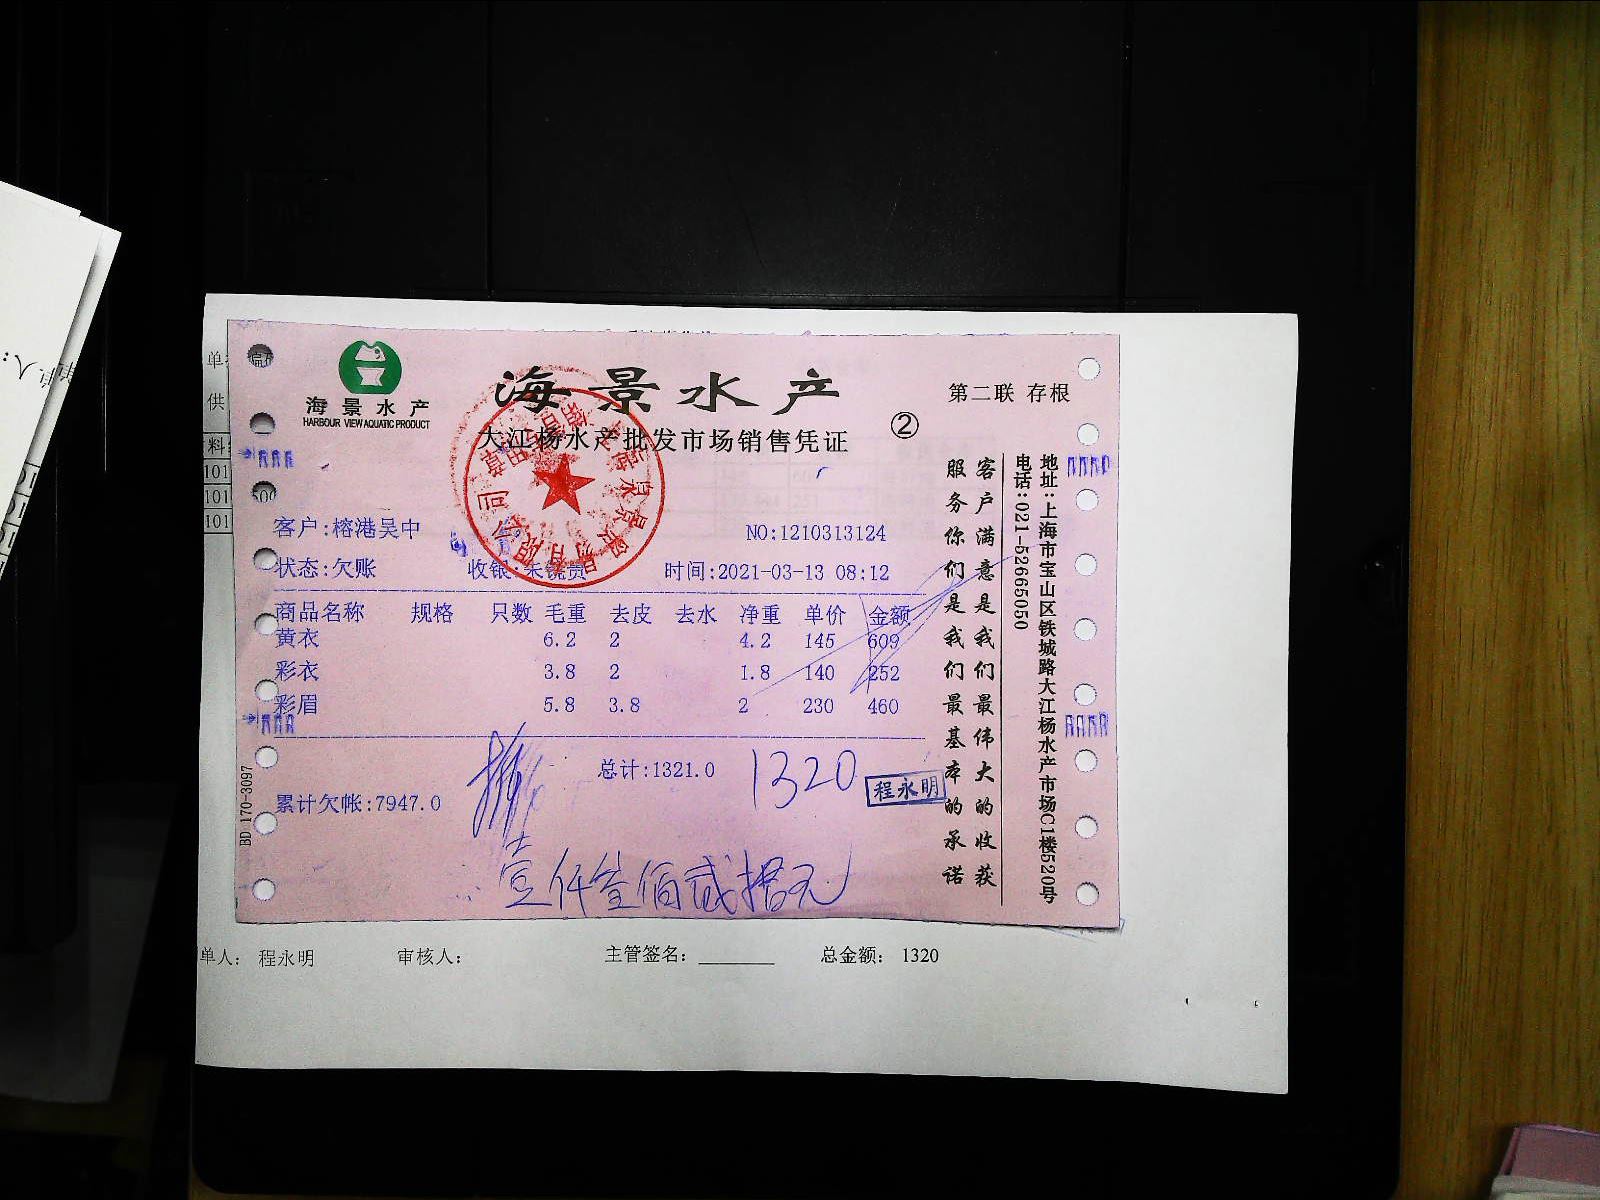 海景水产
HARBOUR VIEW AQUATIC PRODUCT
海景水产
大江杨水产批发市场销售凭证
②
第二联 存根
客户:榕港吴中
NO:1210313124
状态:欠账
收银:
时间:2021-03-13 08:12
商品名称 规格 只数 毛重 去皮 去水 净重 单价 金额
黄衣 6.2 2 4.2 145 609
彩衣 3.8 2 1.8 140 252
彩眉 5.8 3.8 2 230 460
总计:1321.0
1320
程永明
累计欠帐:7947.0
壹仟叁佰贰拾元
BD 170-3097
客户满意是我们最伟大的收获
服务你们是我们最基本的承诺
地址:上海市宝山区铁城路大江杨水产市场C1楼520号
电话:021-52665050
单
供
料
101
101
101
500
单人: 程永明 审核人: 主管签名: 总金额: 1320